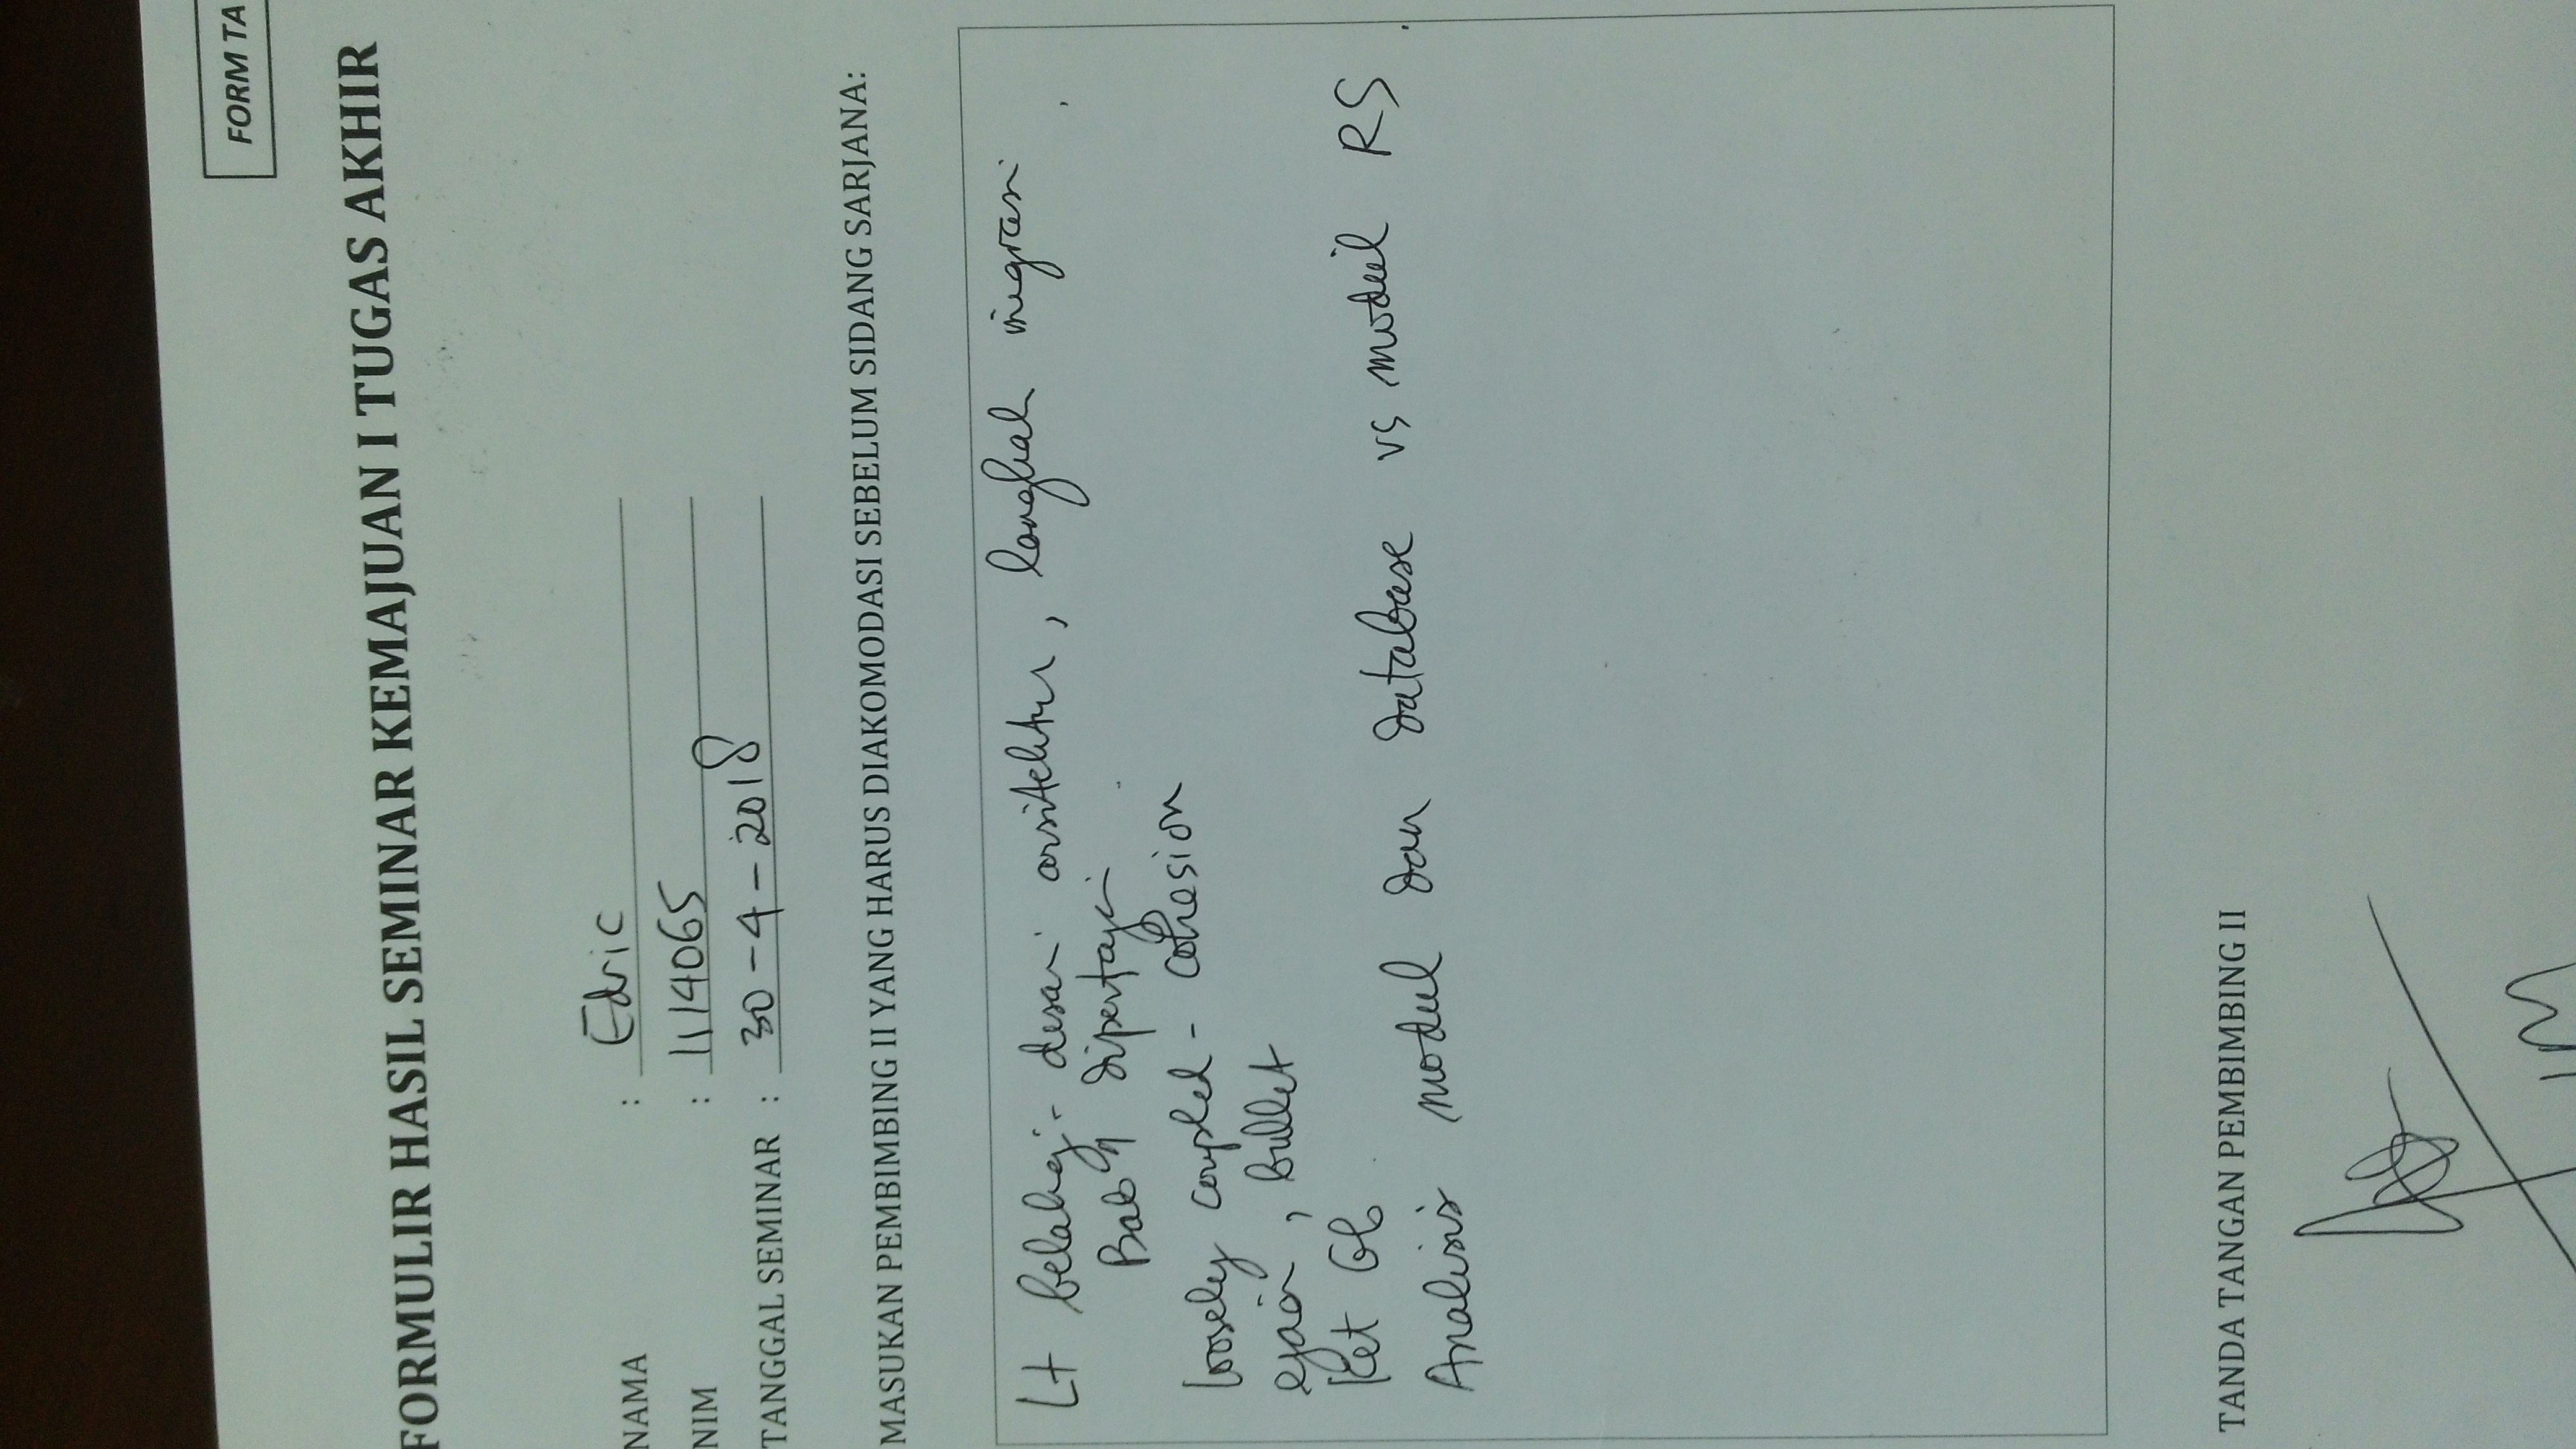 FORM TA
FORMULIR HASIL SEMINAR KEMAJUAN I TUGAS AKHIR
NAMA : Edric
NIM : 1114065
TANGGAL SEMINAR : 30-4-2018
MASUKAN PEMBIMBING II YANG HARUS DIAKOMODASI SEBELUM SIDANG SARJANA:
Lt belakg - desain arsitektur, langkah
Bab dipertaj
loosely coupled - cohesion
ejaan, bullet
Ket Gb
Analisis model dan database vs model RS
TANDA TANGAN PEMBIMBING II